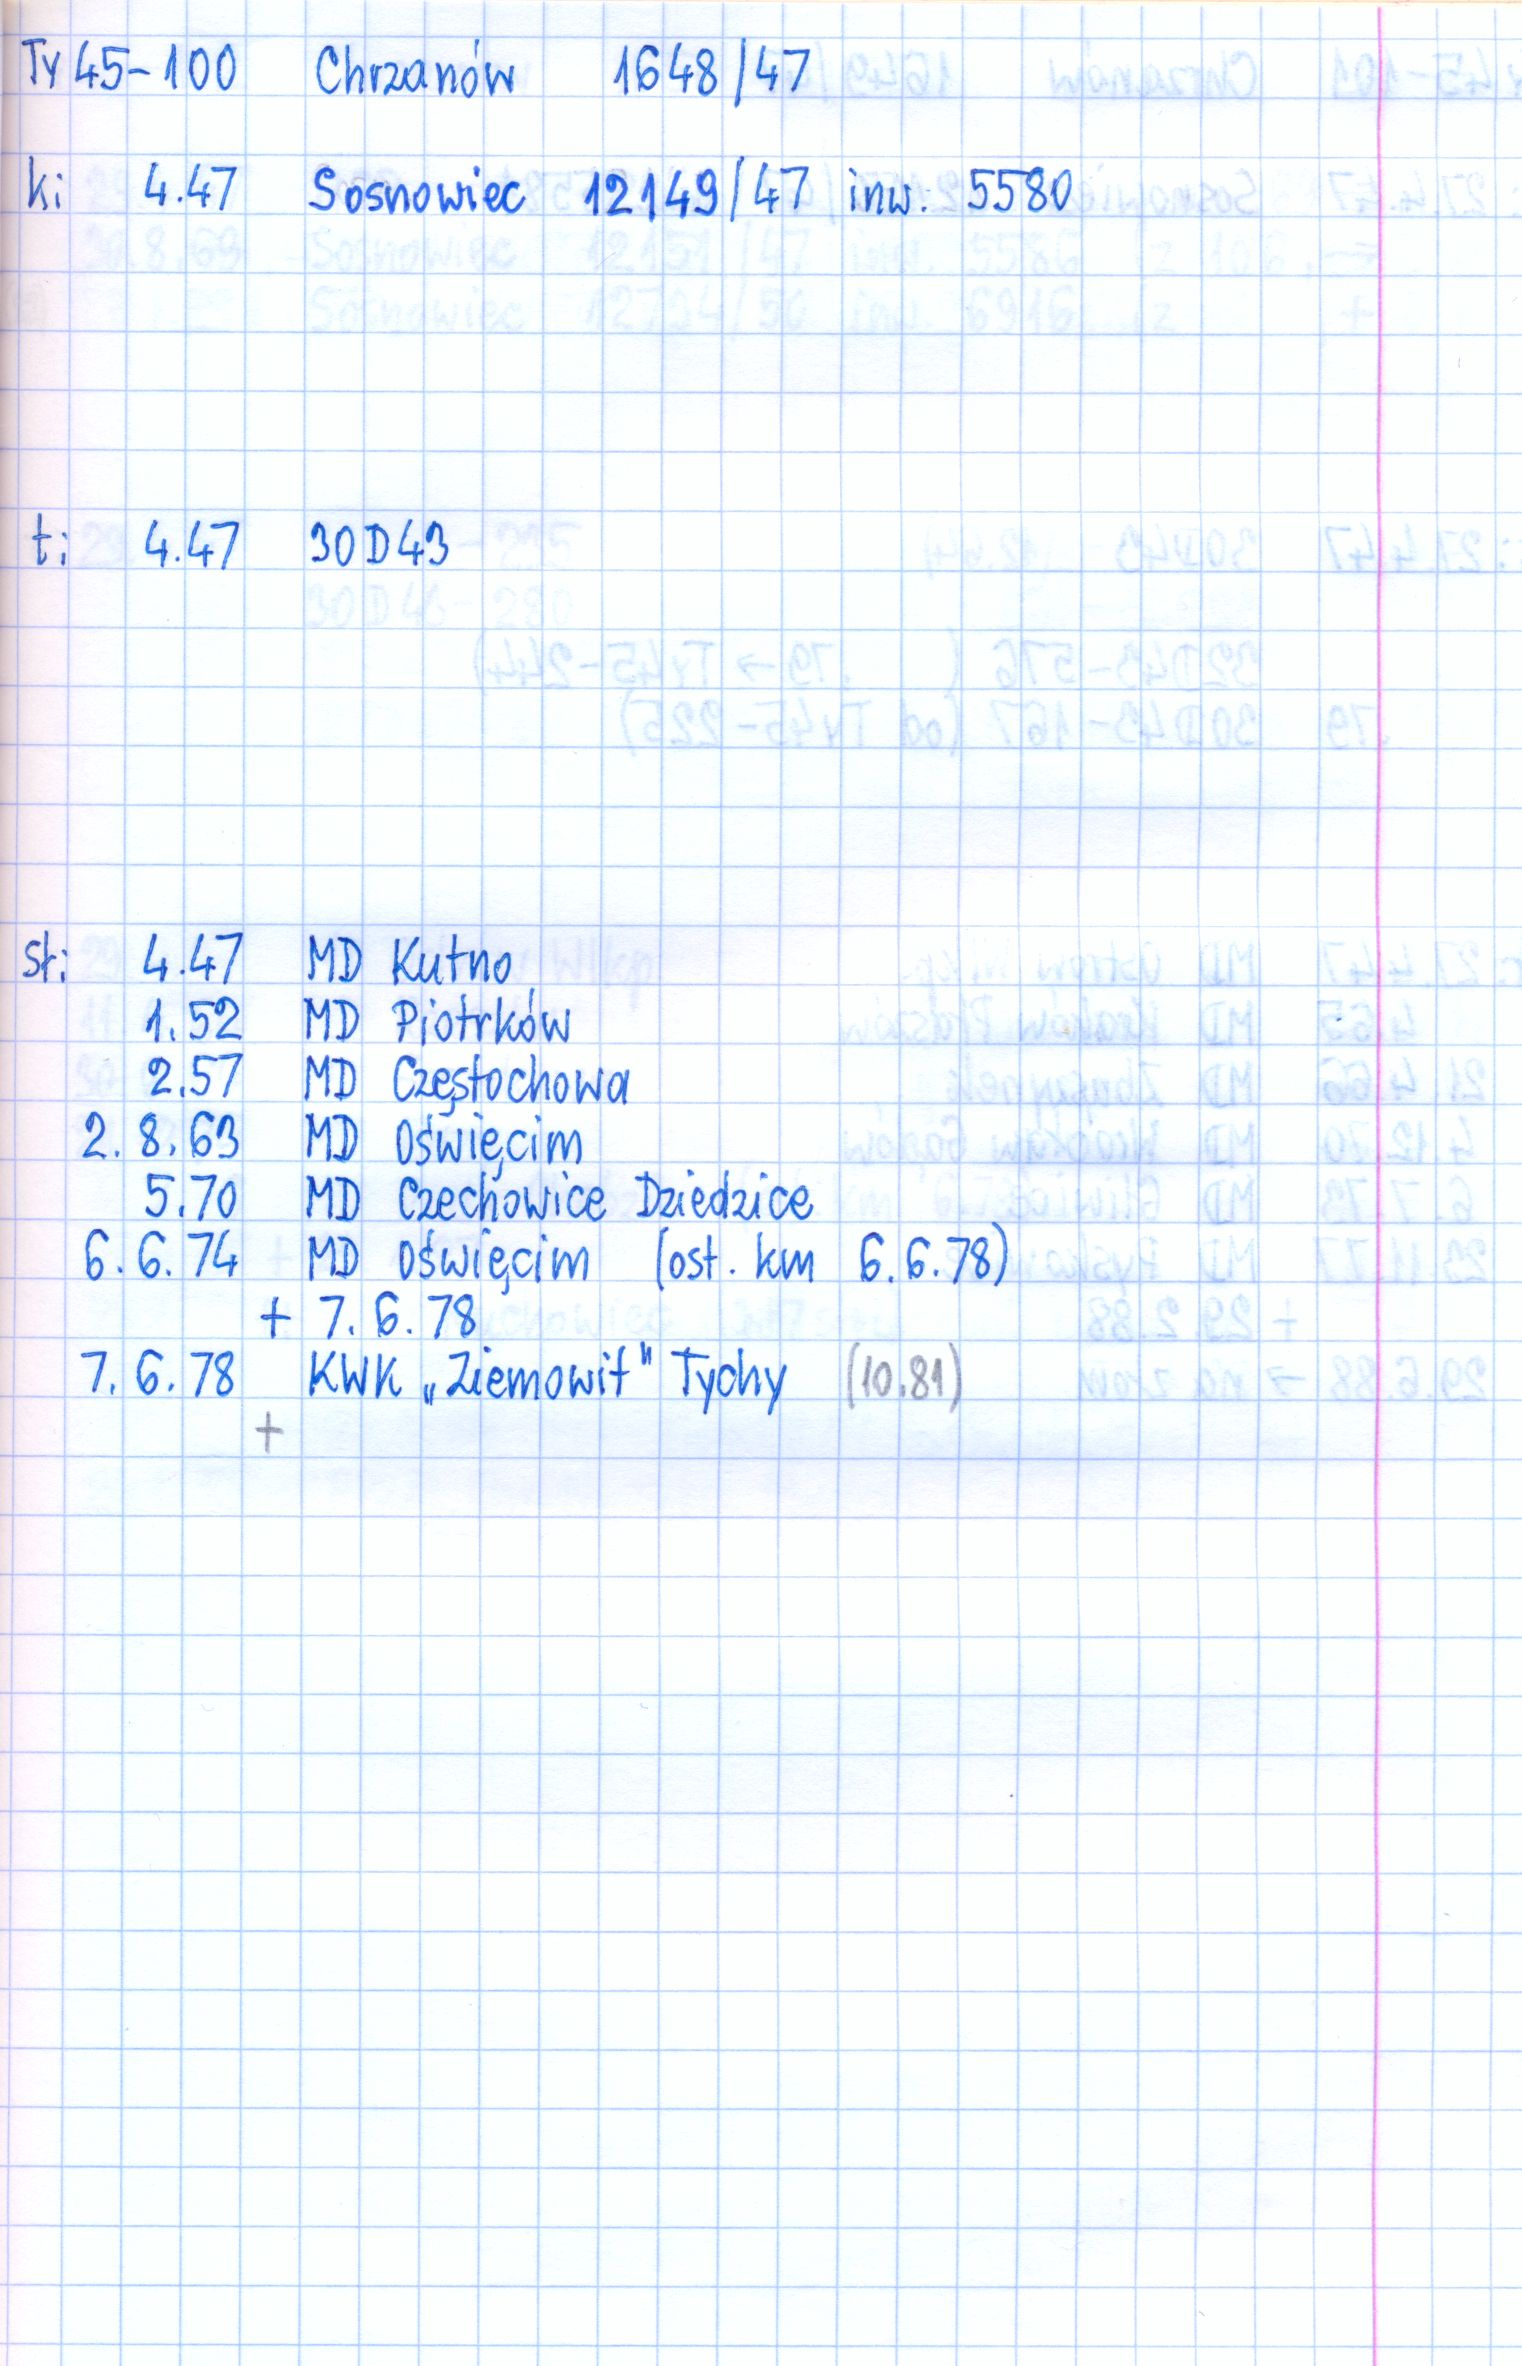 Ty45-100 Chrzanów 1648/47
k: 4.47 Sosnowiec 12149/47 inw. 5580
t: 4.47 30D43
sł: 4.47 MD Kutno
1.52 MD Piotrków
2.57 MD Częstochowa
2.8.63 MD Oświęcim
5.70 MD Czechowice Dziedzice
6.6.74 MD Oświęcim (ost. km 6.6.78)
+ 7.6.78
7.6.78 KWK „Ziemowit" Tychy (10.81)
+